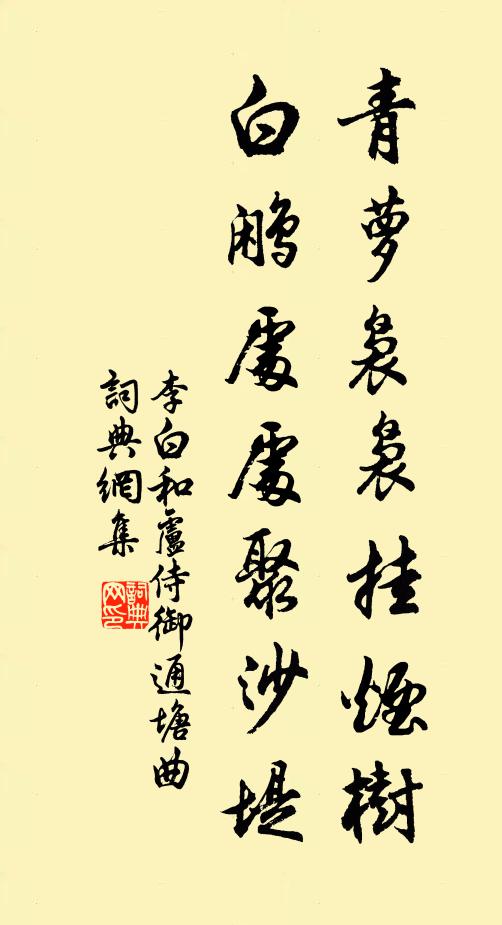 青蘿裊裊挂煙樹
白鷴處處聚沙堤
李白和盧侍御通塘曲
詞典網集
詞典网印